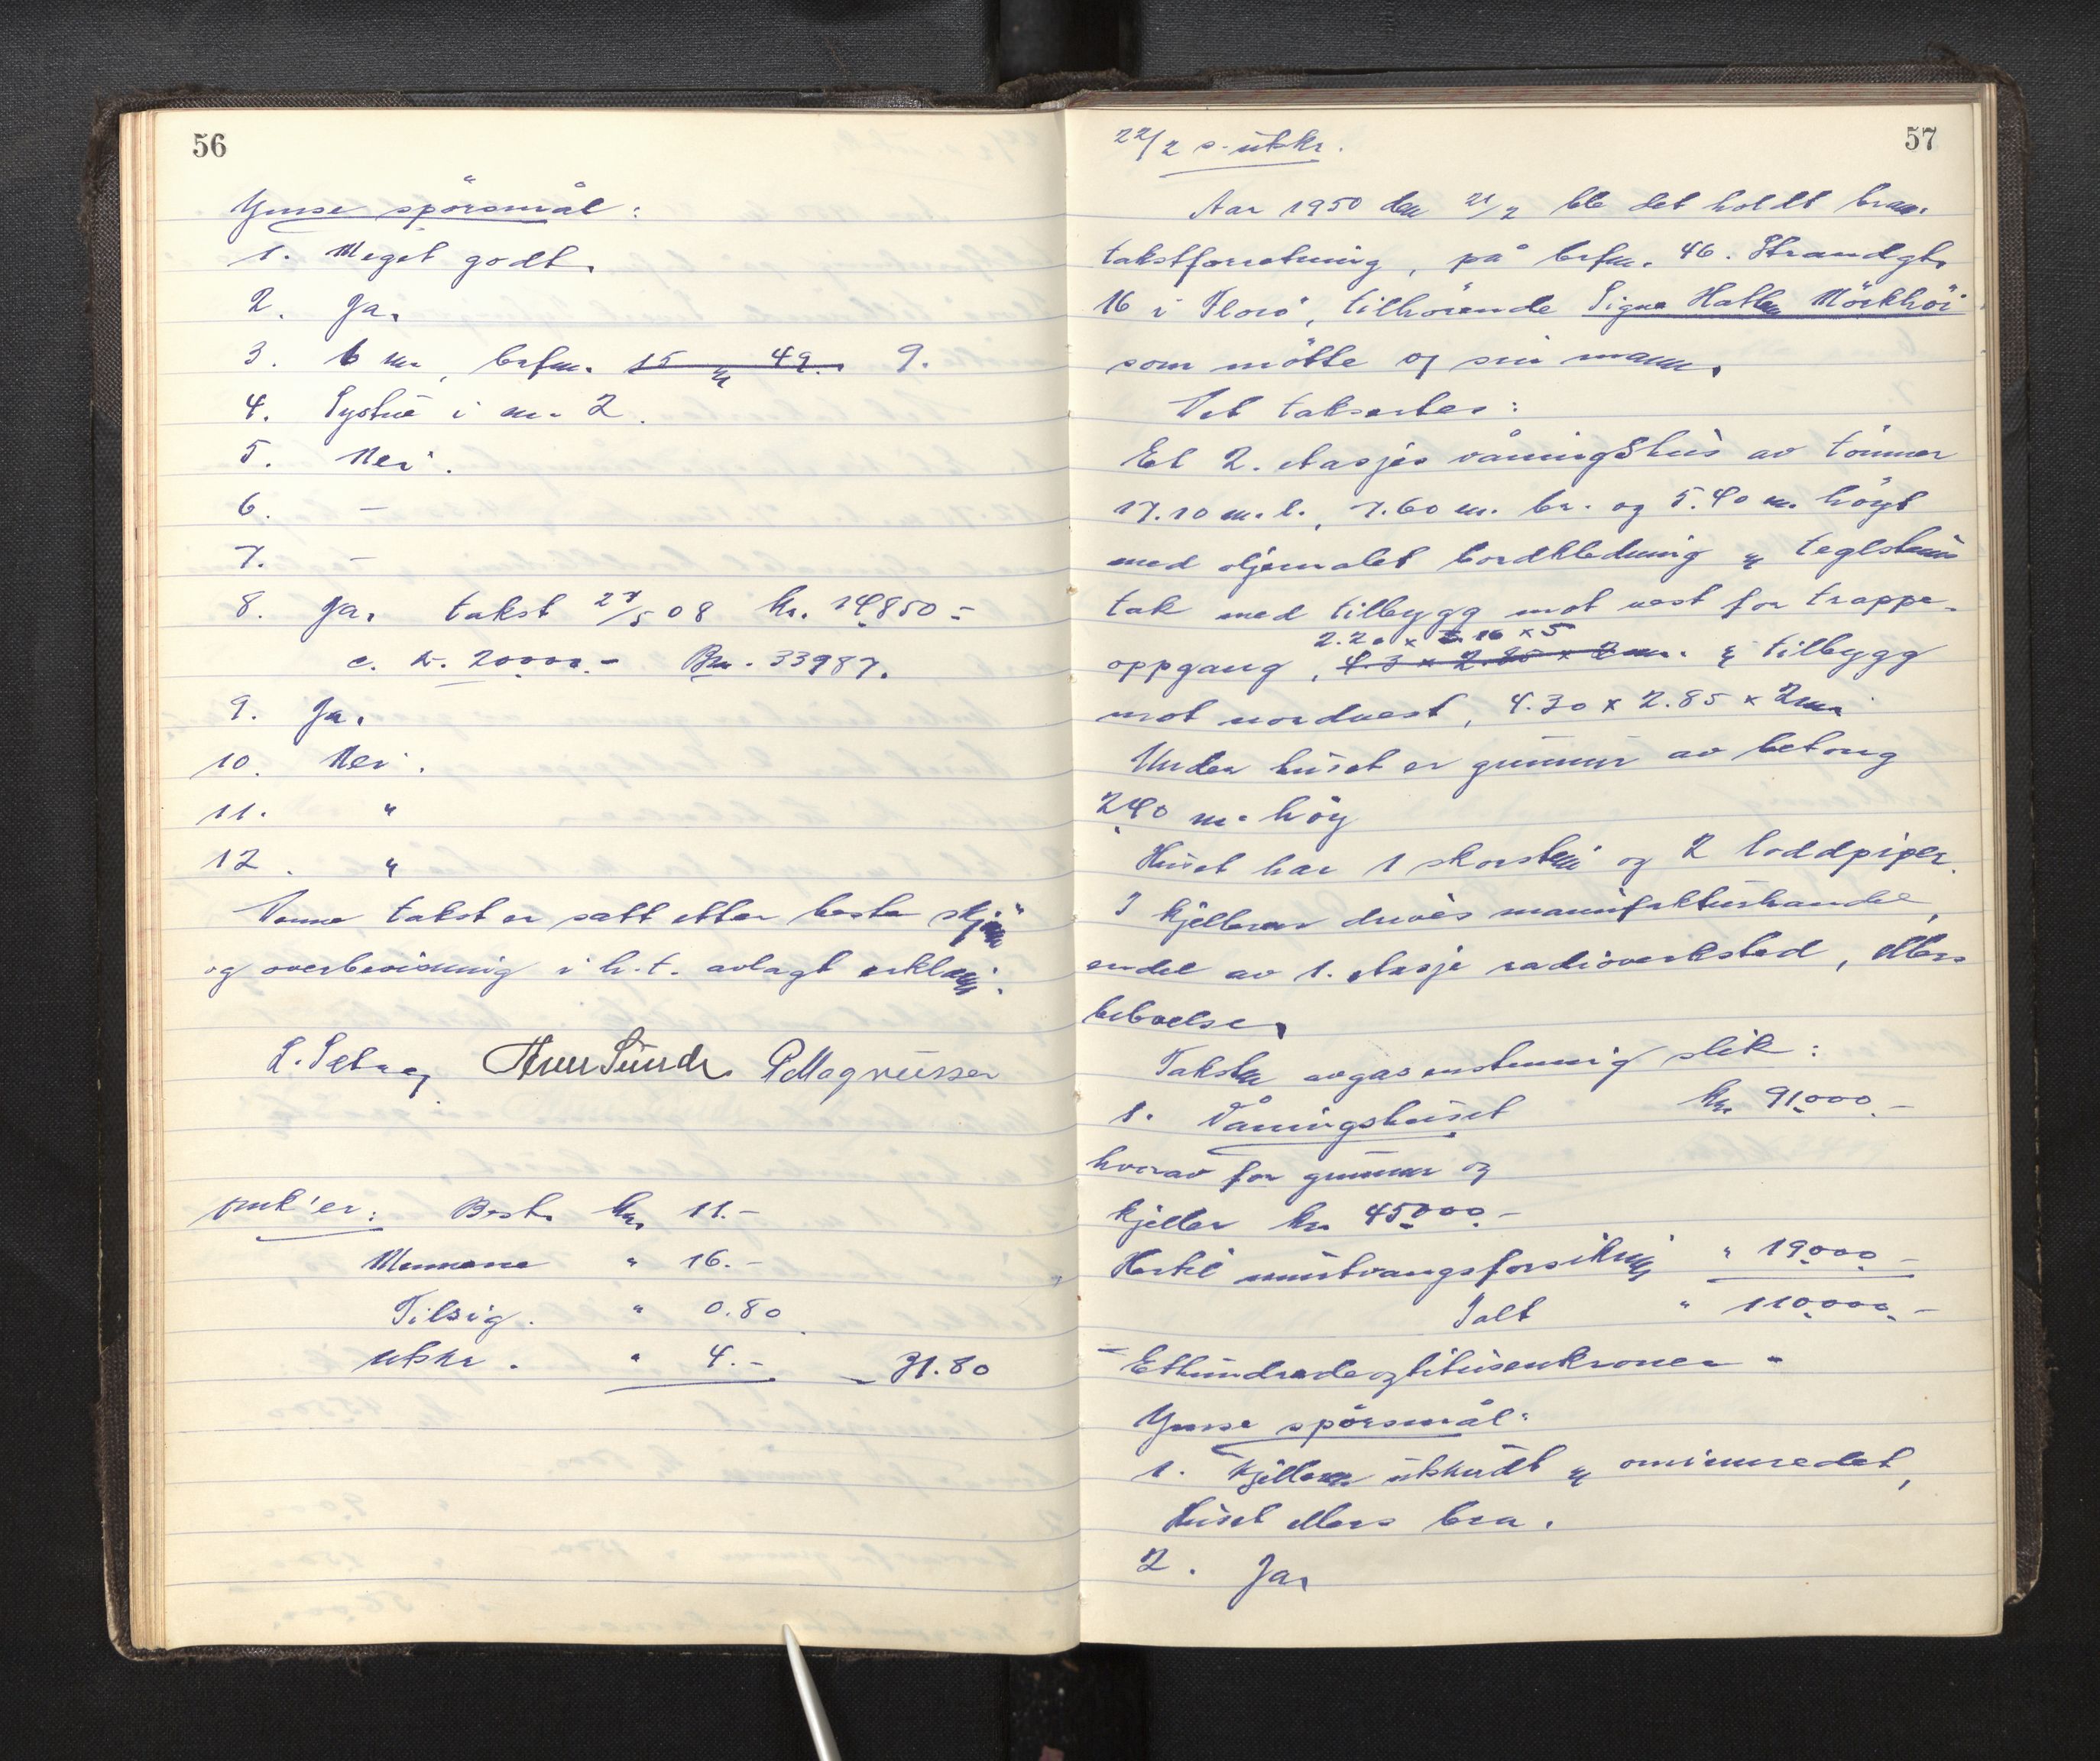 56
Ymse spörsmål:
1. Meget godt.
2. Ja.
3. 6 m, brfm. 15 og 49. 9.
4. Systue i m. 2.
5. Nei.
6. –
7. –
8. Ja. takst 27/5 08 kr. 14850 -
c. kr. 20000.-. Br. 33987.
9. Ja.
10. Nei.
11. "
12. "
Denne takst er satt etter beste skjönn
og overbevisning i h.t. avlagt erklæring.
L. Selvaag Arne Sunde P Magnussen
Omk'er: Best. kr. 11.-
Mennene " 16.-
Tilsig. " 0.80
Utskr. " 4.- – 31.80
57
22/2 s. utskr.
Aar 1950 den 21/2 ble det holdt bran-
takstforretning, på brfm. 46. Strandgt.
16 i Florö, tilhörende Signe Hatlem Mörkhöi
som mötte og sin mann.
Det takseres:
Et 2. etasjes våningshus av tömmer
17.10 m. l., 7.60 m. br. og 5.40 m. höyt
med oljemalet bordkledning og teglsteins
tak med tilbygg mot vest for trappe-
2.20 x 5.16 x 5
oppgang, 4.3 x 2.85 x 2 m. og tilbygg
mot nordvest, 4.30 x 2.85 x 2 m.
Under huset er grunnmur av betong
2.40 m. höy
Huset har 1 skorstein og 2 loddpiper.
I kjelleren drives manufakturhandel,
endel av 1. etasje radioverksted, ellers
beboelse.
Taksten avgas enstemmig slik:
1. Våningshuset kr. 91.000.-
hvorav for grunnmur og
kjeller kr. 45.000.-
Hertil unntvangsforsikring " 19.000.-
Ialt " 110.000.-
– Ethundradeogtitusenkroner –
Ymse spörsmål:
1. Kjelleren utskudt og ominnredet,
Huset ellers bra.
2. Ja.